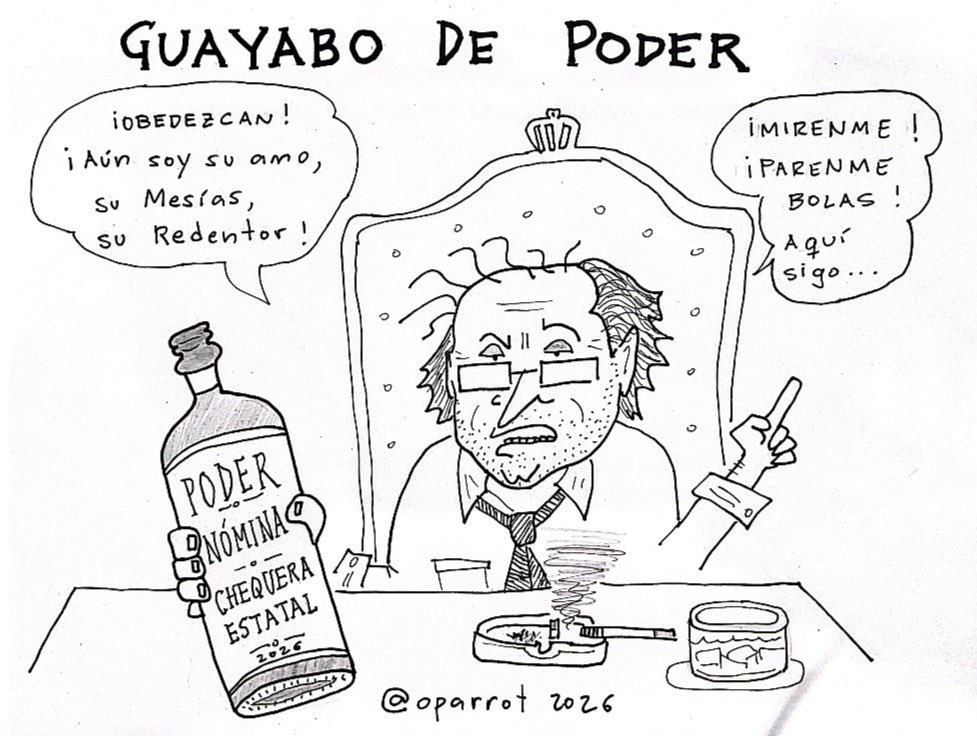 GUAYABO DE PODER
¡OBEDEZCAN!
¡Aún soy su amo,
su Mesías,
su Redentor!
¡MIRENME!
¡PARENME
BOLAS!
Aquí
sigo...
PODER
NÓMINA
CHEQUERA
ESTATAL
2026
@oparrot 2026